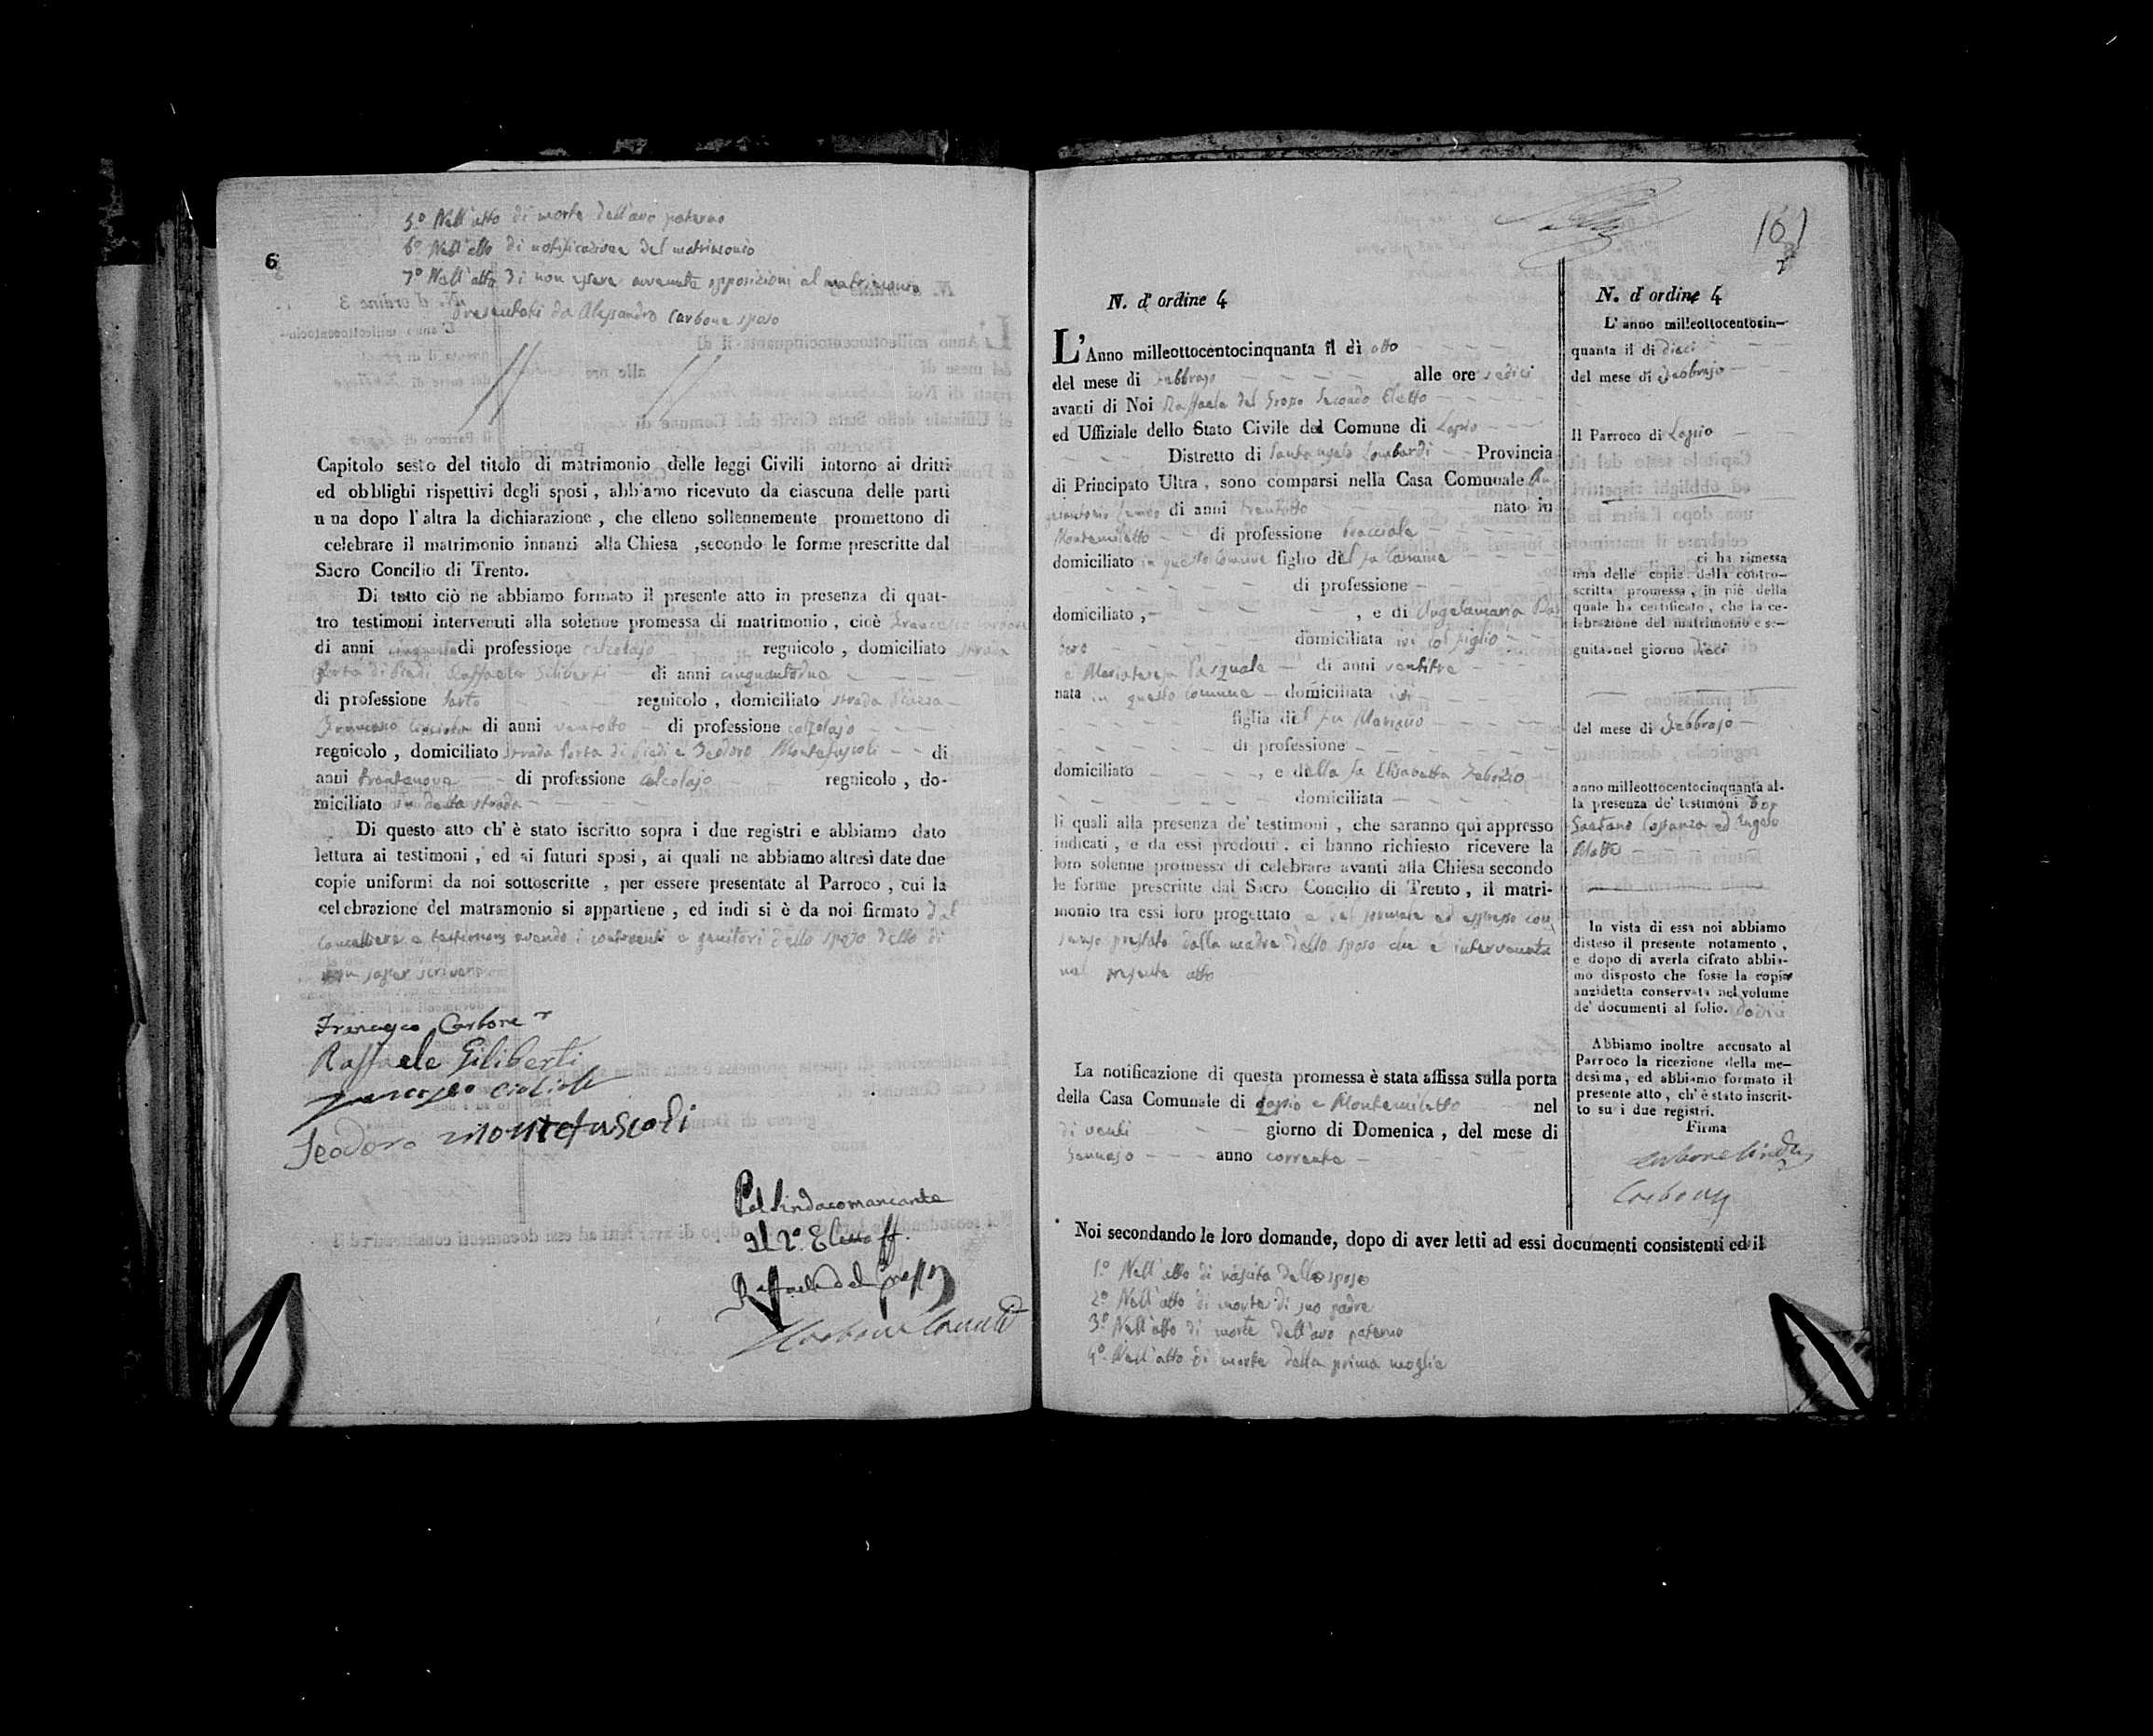 6
5º Nell'atto di morte dell'avo paterno
6º Nell'atto di notificazione del matrimonio
7º Nell'atto di non essere avvenute opposizioni al matrimonio
presentati da Alessandro Carbone sposo
Capitolo sesto del titolo di matrimonio delle leggi Civili intorno ai dritti
ed obblighi rispettivi degli sposi , abbiamo ricevuto da ciascuna delle parti
una dopo l'altra la dichiarazione , che elleno sollennemente promettono di
celebrare il matrimonio innanzi alla Chiesa ,secondo le forme prescritte dal
Sacro Concilio di Trento.
Di tutto ciò ne abbiamo formato il presente atto in presenza di quat-
tro testimoni intervenuti alla solenne promessa di matrimonio , cioè Francesco Carbone
di anni di professione calzolajo regnicolo , domiciliato strada
Porta di Piedi Raffaele Giliberti di anni cinquantuno
di professione Sarto regnicolo , domiciliato strada Piazza
Francesco di anni ventotto di professione calzolajo
regnicolo , domiciliato strada Porta di Piedi e Teodoro Montefuscoli di
anni trentanove di professione calzolajo regnicolo , do-
miciliato in detta strada
Di questo atto ch' è stato iscritto sopra i due registri e abbiamo dato
lettura ai testimoni , ed ai futuri sposi , ai quali ne abbiamo altresì date due
copie uniformi da noi sottoscritte , per essere presentate al Parroco , cui la
celebrazione del matramonio si appartiene , ed indi si è da noi firmato dal
Cancelliere e testimoni avendo i contraenti e genitori dello sposo detto di
non saper scrivere
Francesco Carbone
Raffaele Giliberti
Teodoro Montefuscoli
Pel Sindaco mancante
Il 2º Eletto ff.
Raffaele del Grosso
N. d' ordine 4
L' Anno milleottocentocinquanta il dì otto
del mese di Febbrajo alle ore sedici
avanti di Noi Raffaele del Grosso Secondo Eletto
ed Uffiziale dello Stato Civile del Comune di Lapio
Distretto di Santangelo Lombardi Provincia
di Principato Ultra , sono comparsi nella Casa Comunale
di anni trentotto nato in
Montemiletto di professione bracciale
domiciliato in questo Comune figlio del fu Carmine
di professione
domiciliato , , e di Angelamaria
domiciliata ivi col figlio
e Mariateresa Pasquale di anni ventitre
nata in questo Comune domiciliata ivi
figlia del fu
di professione
domiciliato , e della fu Elisabetta
domiciliata
li quali alla presenza de' testimoni , che saranno qui appresso
indicati , e da essi prodotti , ci hanno richiesto ricevere la
loro solenne promessa di celebrare avanti alla Chiesa secondo
le forme prescritte dal Sacro Concilio di Trento , il matri-
monio tra essi loro progettato e del formale ed espresso con
senso prestato dalla madre dello sposo che è intervenuta
nel presente atto
La notificazione di questa promessa è stata affissa sulla porta
della Casa Comunale di Lapio e Montemiletto nel
dì venti giorno di Domenica , del mese di
Gennajo anno corrente
Noi secondando le loro domande, dopo di aver letti ad essi documenti consistenti ed il
1º Nell'atto di nascita dello sposo
2º Nell'atto di morte di suo padre
3º Nell'atto di morte dell'avo paterno
4º Nell'atto di morte della prima moglie
7
N. d' ordine 4
L' anno milleottocentocin-
quanta il dì dieci
del mese di Febbrajo
Il Parroco di Lapio
ci ha rimessa
una delle copie della contro-
scritta promessa , in piè della
quale ha certificato , che la ce-
lebrazione del matrimonio è se-
guita nel giorno dieci
del mese di Febbrajo
anno milleottocentocinquanta al-
la presenza de' testimoni
Gaetano Costanza ed Angelo
In vista di essa noi abbiamo
disteso il presente notamento ,
e dopo di averla cifrato abbia-
mo disposto che fosse la copia
anzidetta conservata nel volume
de' documenti al folio.
Abbiamo inoltre accusato al
Parroco la ricezione della me-
desima , ed abbiamo formato il
presente atto , ch' è stato inscrit-
to su i due registri.
Firma